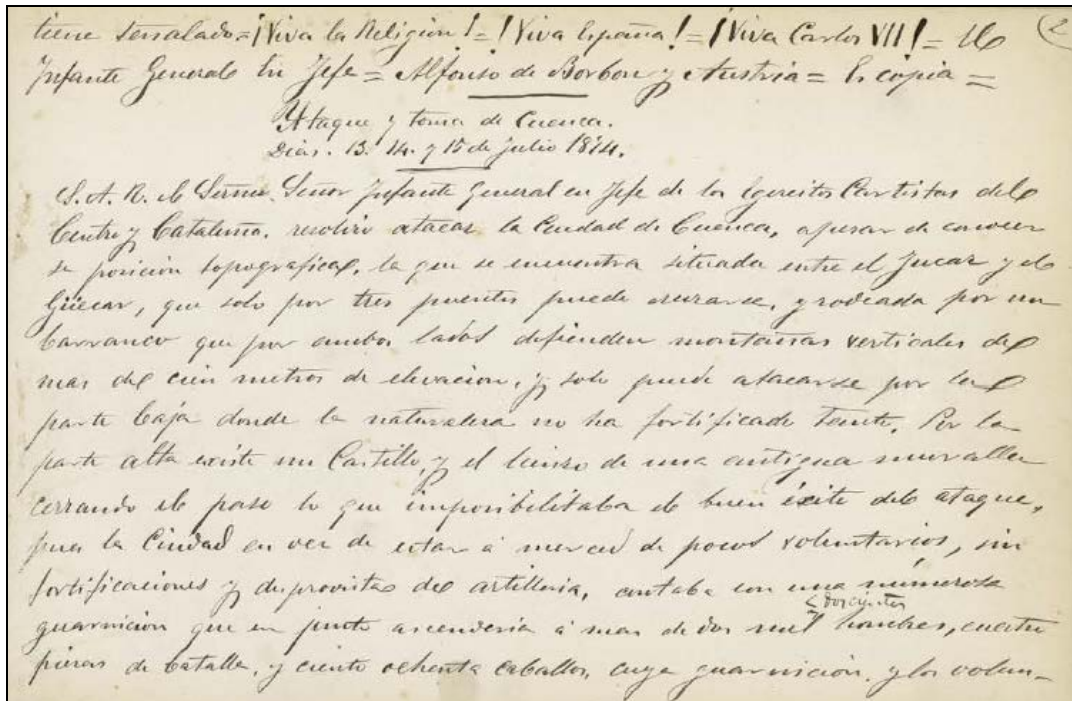 tiene señalado=¡Viva la Religion!=¡Viva España!=¡Viva Carlos VII!= El 2
Infante General En Jefe = Alfonso de Borbon y Austria = Es copia =
Ataque y toma de Cuenca.
Dias. 13. 14. y 15 de Julio 1874.
S. A. R. el Sermo. Señor Infante General en Jefe de los Egercitos Carlistas del
Centro y Cataluña, resolvió atacar la Ciudad de Cuenca, apesar de conocer
su posición topografica, la que se encuentra situada entre el Jucar y el
Güecar, que solo por tres puentes puede cruzarse, y rodeada por un
barranco que por ambos lados defienden montañas verticales de
mas de cien metros de elevacion, y solo puede atacarse por la
parte baja donde la naturaleza no ha fortificado tanto. Por la
parte alta existe un Castillo, y el lienzo de una antigua muralla
cerrando el paso lo que imposibilitaba el buen éxito del ataque,
pues la Ciudad en vez de estar á merced de pocos voluntarios, sin
fortificaciones y desprovistas de artilleria, contaba con una númerosa
guarnicion que en junto ascenderia á mas de dos mil doscientos hombres, cuatro
piezas de batalla, y ciento ochenta caballos, cuya guarnición, y los volun-